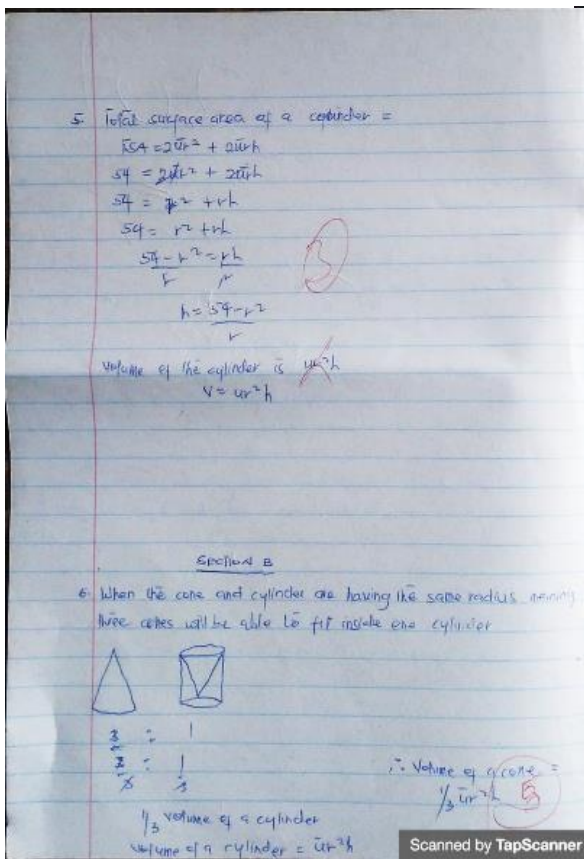 5. Total surface area of a cylinder =
TSA = 2πr² + 2πrh
54 = 2πr² + 2πrh
54 = r² + rh
54 = r² + rh
54 - r² = rh
r r
h = 54 - r²
r
3
Volume of the cylinder is πr²h
V = πr²h
SECTION B
6. When the cone and cylinder are having the same radius meaning
three cones will be able to fit inside one cylinder
3 : 1
3 : 1
3 3
∴ Volume of a cone =
1/3 πr²h
5
1/3 volume of a cylinder
volume of a cylinder = πr²h
Scanned by TapScanner